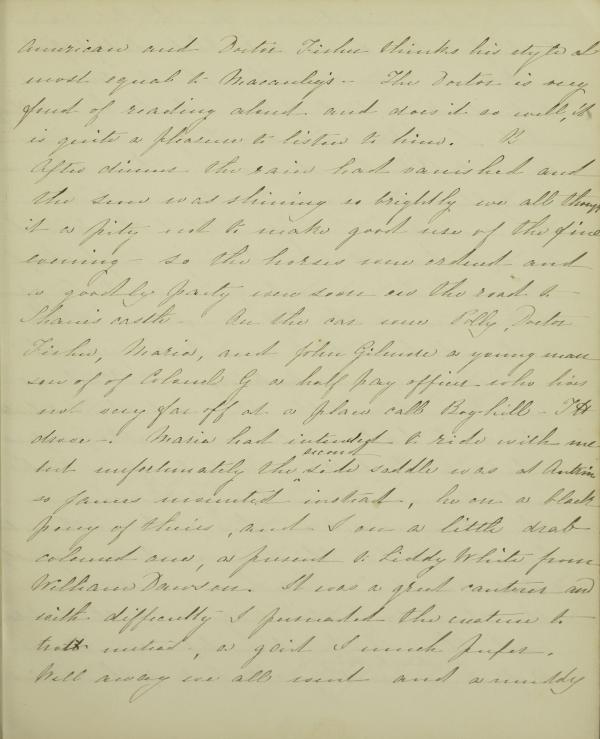 American and Doctor Fisher thinks his style al
most equal to Macauley's - The Doctor is very
fond of reading aloud and does it so well, it
is quite a pleasure to listen to him.
After dinner the rain had vanished and
the sun was shining so brightly we all thougt
it a pity not to make good use of the fine
evening - so the horses were ordered and
a goodly party were soon on the road to
Shanis castle - On the car were Polly, Doctor
Fisher, Maria, and John Gilmore a young man
son of of Colonel G a half pay officer who lives
not very far off at a place call Boghill -
drove -. Maria had intended to ride with me
but unfortunately the second side saddle was at Antrim
so James mounted instead, he on a black
pony of theirs, and I on a little drab
coloured one, a present to Liddy White from
William Dawson. It was a great canterer and
with difficulty I persuaded the creature to
trott instead, a gait I much prefer.
Well away we all went and a muddy